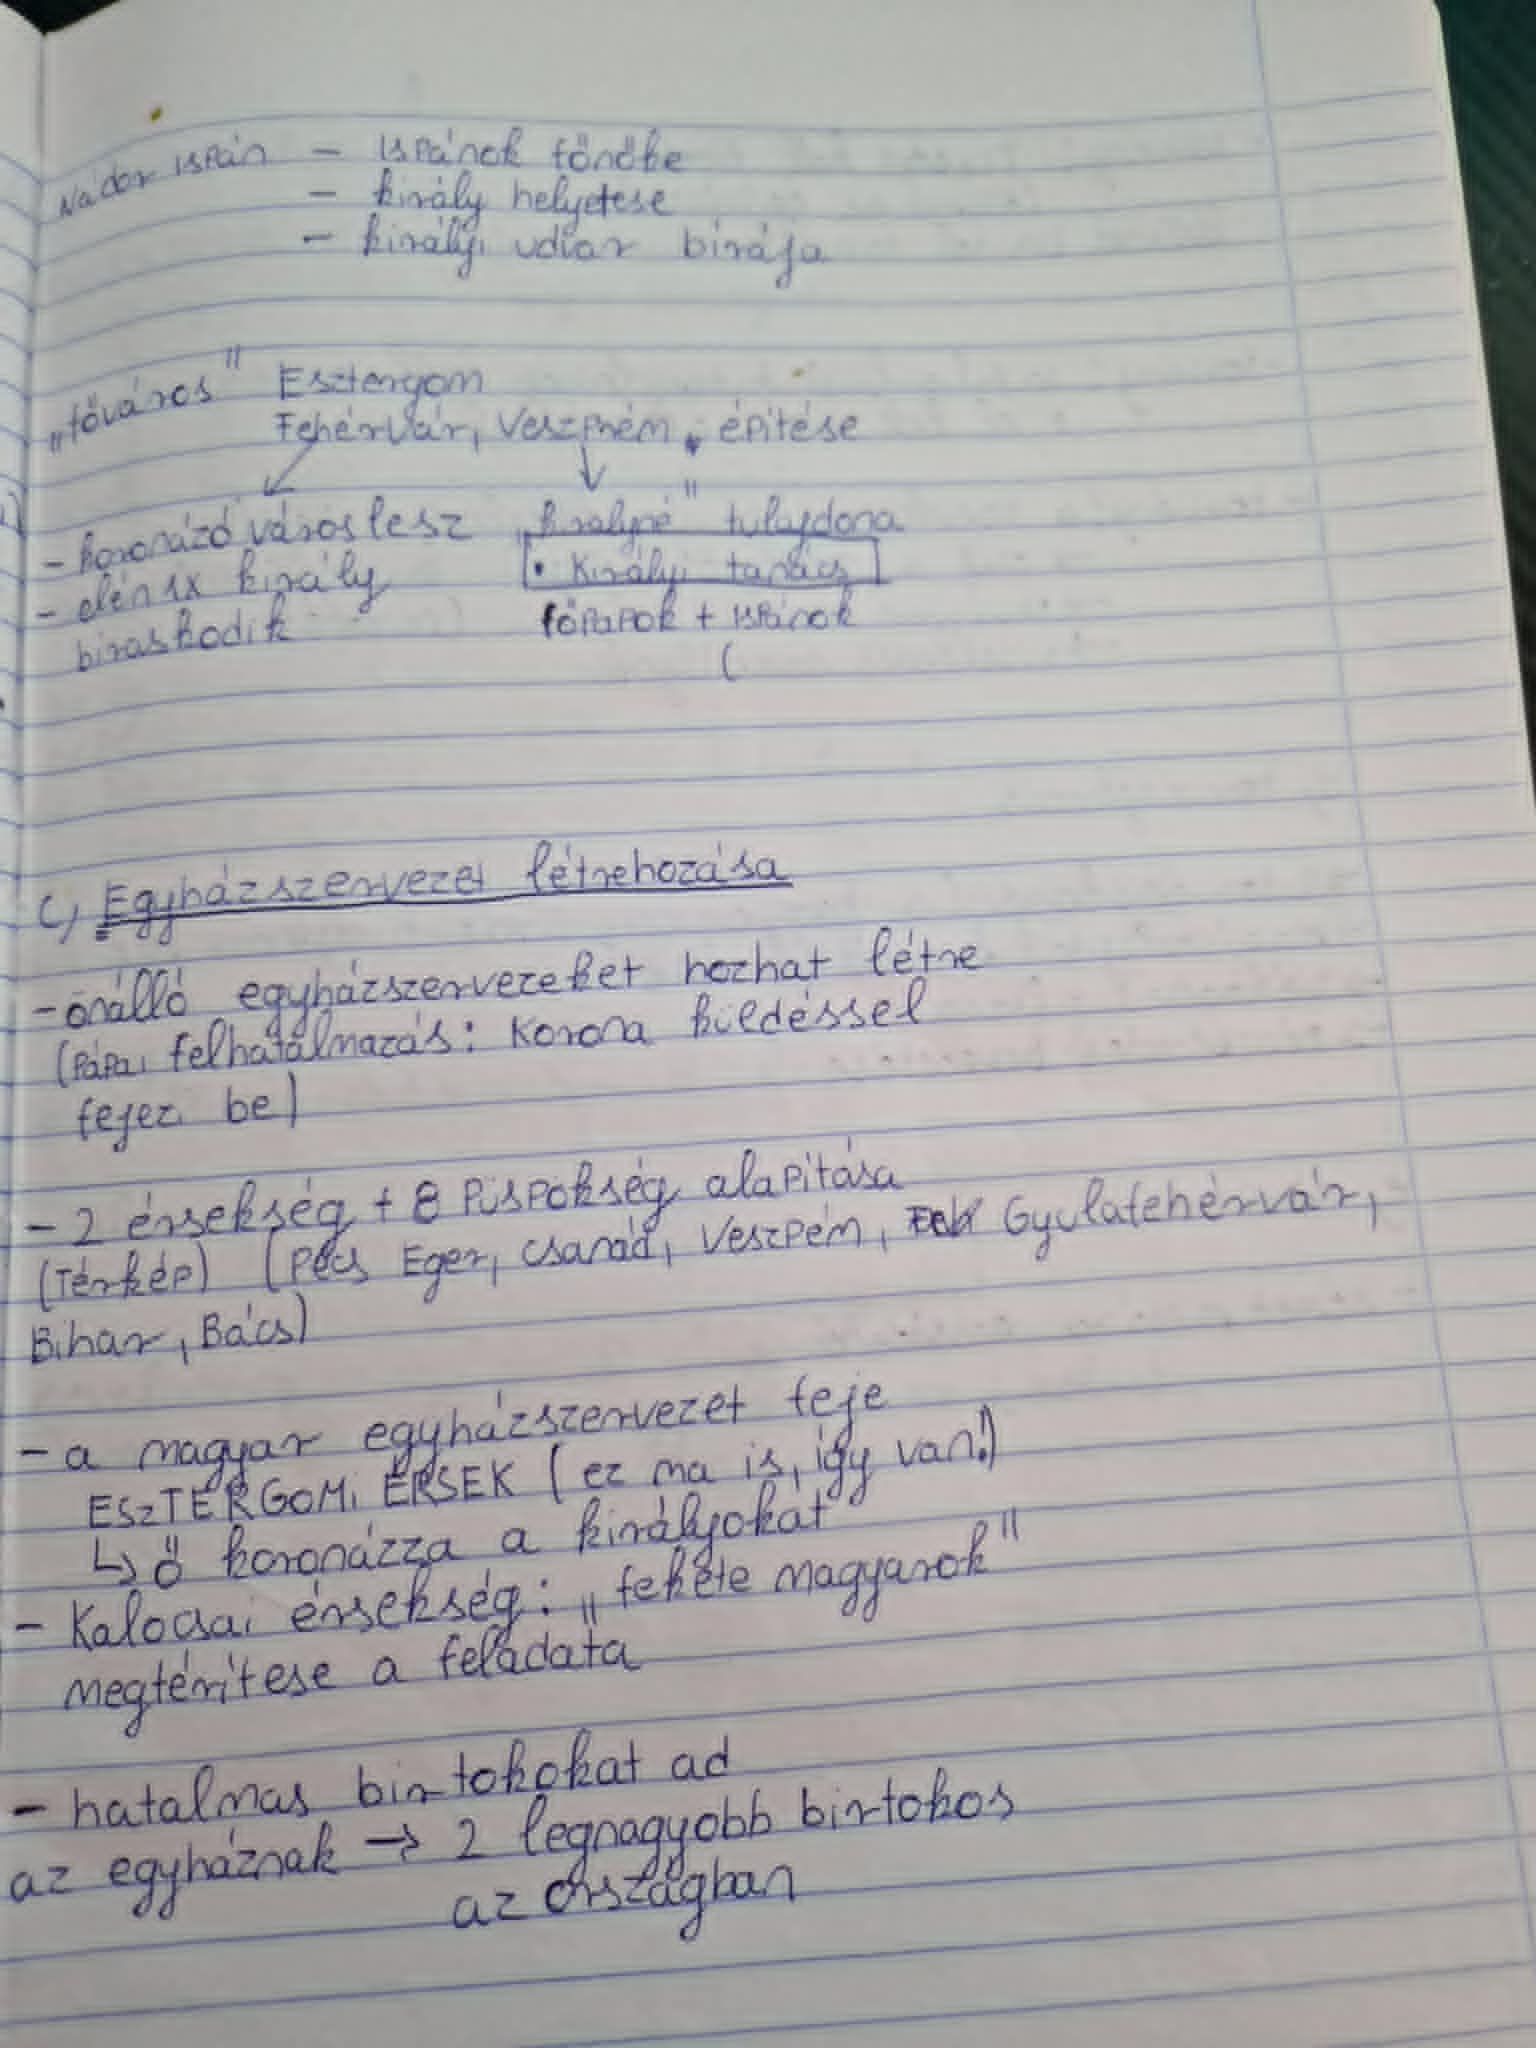 Nádor ispán - ispánok főnöke
- király helyetese
- királyi udvar bírája
„főváros" Esztergom
Fehérvár, Veszprém építése
- koronázó város lesz „királyné" tulajdona
- élén 1x király • Királyi tanács
biraskodik főpapok + ispánok
(
C) Egyházszervezet létrehozása
- önálló egyházszervezeket hozhat létre
(Pápai felhatalmazás: Korona küldéssel
fejez be)
- 2 érsekség + 8 Püspökség alapítása
(Térkép) (Pécs Eger, Csanád, Veszpém, Gyulafehérvár,
Bihar, Bács)
- a magyar egyházszervezet feje
ESZTERGOMi ÉRSEK (ez ma is, így van!)
↳ ő koronázza a királyokat
- Kalocsai érsekség: „fekete magyarok"
megtérítese a feladata
- hatalmas birtokokat ad
az egyháznak → 2 legnagyobb birtokos
az országban